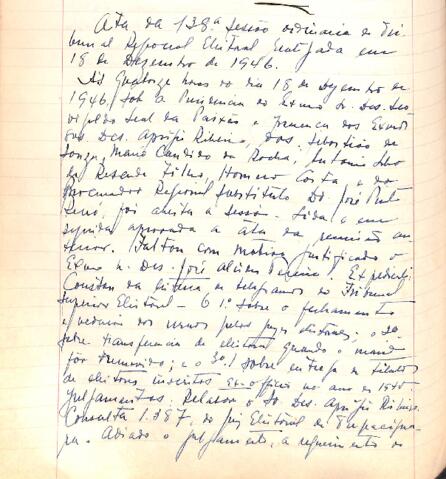 Ata da 138ª sessão ordinaria do Tri-
bunal Regional Eleitoral realizada em
18 de Dezembro de 1946.
Ás Quatorze horas do dia 18 de Dezembro de
1946, sob a Presidencia do Exmo Sr. Des. Leo-
vigildo Leal da Paixão e presença dos Exmos
Srs. Des. Agripio Ribeiro, Drs. Sebastião de
Souza, Mario Candido da Rocha, Antonio
de Resende Filho, Homero Costa e do
Procurador Regional Substituto Dr. José
foi aberta a sessão. Lida e em
seguida aprovada a ata da reunião an-
terior. Faltou com motivo justificado o
Exmo Sr. Des. José Alcides Pereira. Expediente:
Constou da leitura de telegramas do Tribunal
Superior Eleitoral – o 1º sobre o fechamento
pelos juizes eleitorais; o 2º
sobre transferencia de eleitores quando o
for removido; e o 3º, sobre entrega de titulos
de eleitores inscritos ex-officio no ano de 1945
Julgamentos: Relator o Sr. Des. Agripio Ribeiro.
Consulta 1.387, do Juiz Eleitoral de Tupacigua-
ra. Adiado o julgamento, a requerimento do